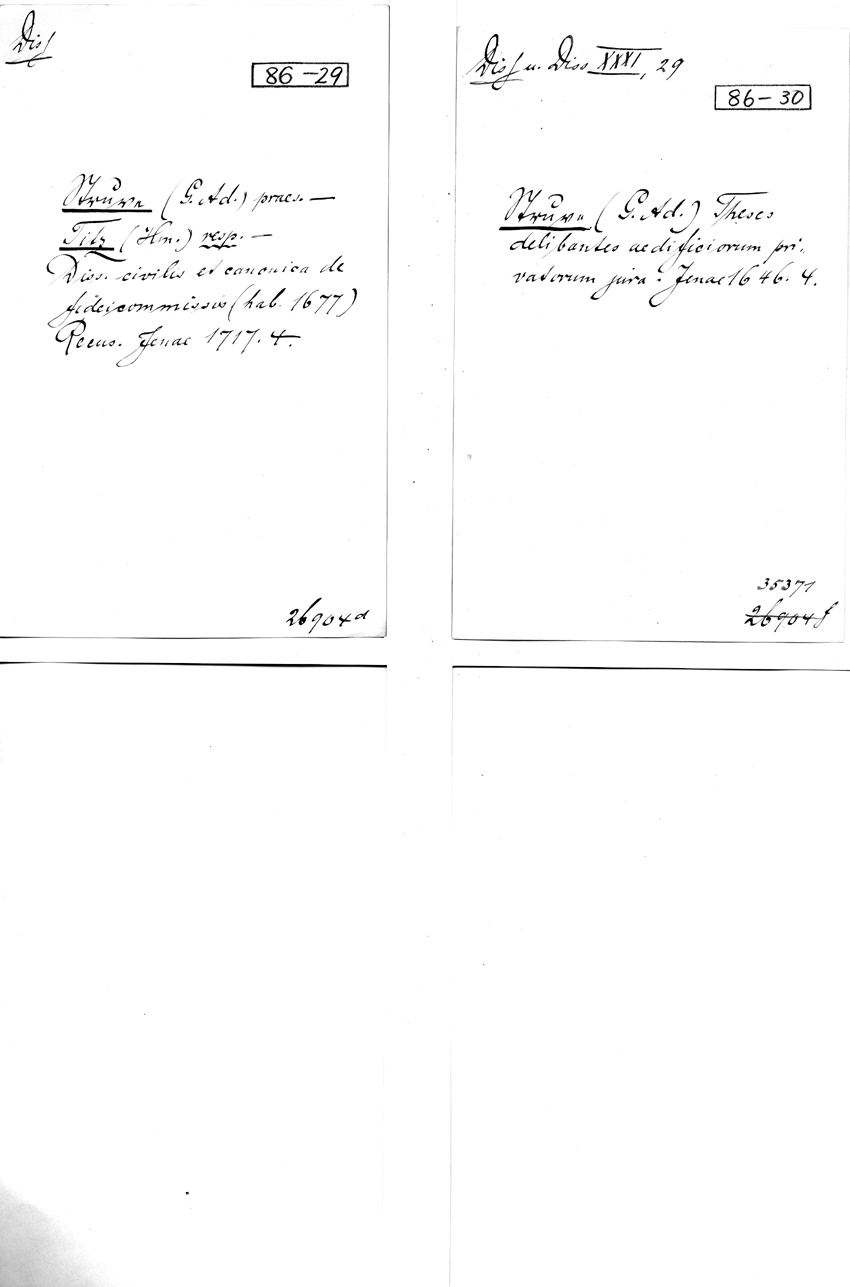 Diss
86-29
Struve (G. Ad.) praes. —
Titz (Hm.) resp. —
Diss. civilis et canonica de
fideicommissis (hab. 1677)
Recus. Jenae 1717. 4.
26904d
Diss u. Diss XXXI, 29
86-30
Struve (G. Ad.) Theses
delibantes aedificiorum pri-
vatorum jura. Jenae 1646. 4.
35371
26904f